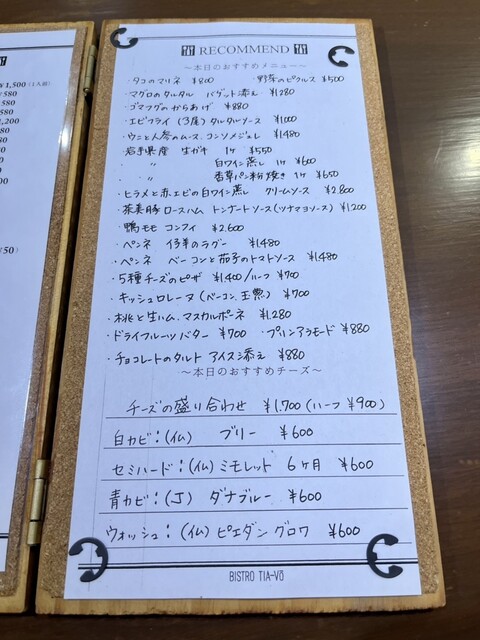 ¥1,500(1人前)
¥580
580
580
1,200
580
580
580
¥50)
TAT RECOMMEND TAT
～本日のおすすめメニュー～
・タコのマリネ ¥800 ・野菜のピクルス ¥500
・マグロのタルタル バゲット添え ¥1280
・ゴマフグのからあげ ¥880
・エビフライ(3尾) タルタルソース ¥1000
・ウニと人参のムース、コンソメジュレ ¥1,480
・岩手県産 生ガキ 1ヶ ¥550
〃 〃 白ワイン蒸し 1ヶ ¥600
〃 〃 香草パン粉焼き 1ヶ ¥650
・ヒラメと赤エビの白ワイン蒸し クリームソース ¥2,800
・茶美豚 ロースハム トンナートソース(ツナマヨソース) ¥1,200
・鴨モモ コンフィ ¥2,600
・ペンネ 仔羊のラグー ¥1,480
・ペンネ ベーコンと茄子のトマトソース ¥1,480
・5種チーズのピザ ¥1,400/ハーフ ¥700
・キッシュロレーヌ(ベーコン、玉葱) ¥700
・桃と生ハム、マスカルポーネ ¥1,280
・ドライフルーツバター ¥700 ・プリンアラモード ¥880
・チョコレートのタルト アイス添え ¥880
～本日のおすすめチーズ～
チーズの盛り合わせ ¥1,700(ハーフ ¥900)
白カビ:(仏) ブリー ¥600
セミハード:(仏) ミモレット 6ヶ月 ¥600
青カビ:(J) ダナブルー ¥600
ウォッシュ:(仏) ピエダングロワ ¥600
BISTRO TIA-VÕ